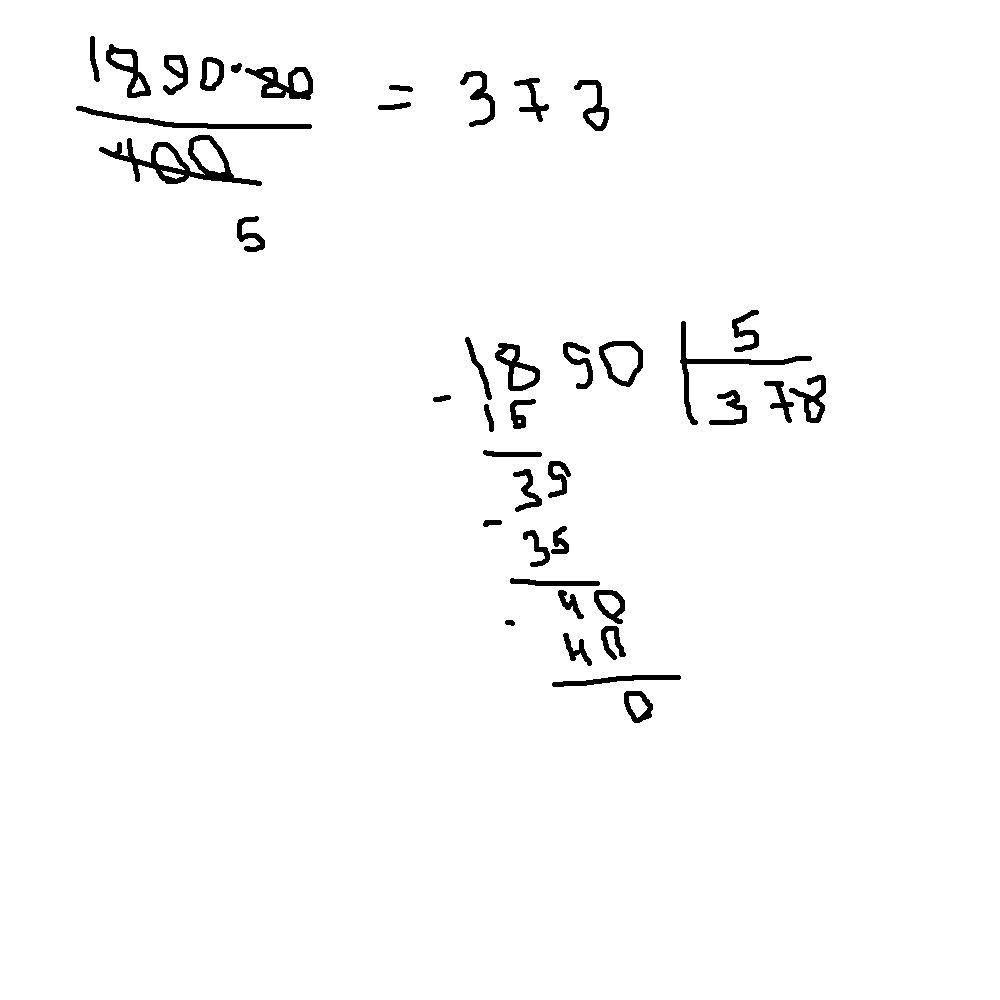 1890·80 = 378
400
5
1890 5
- 15 378
39
- 35
40
- 40
0